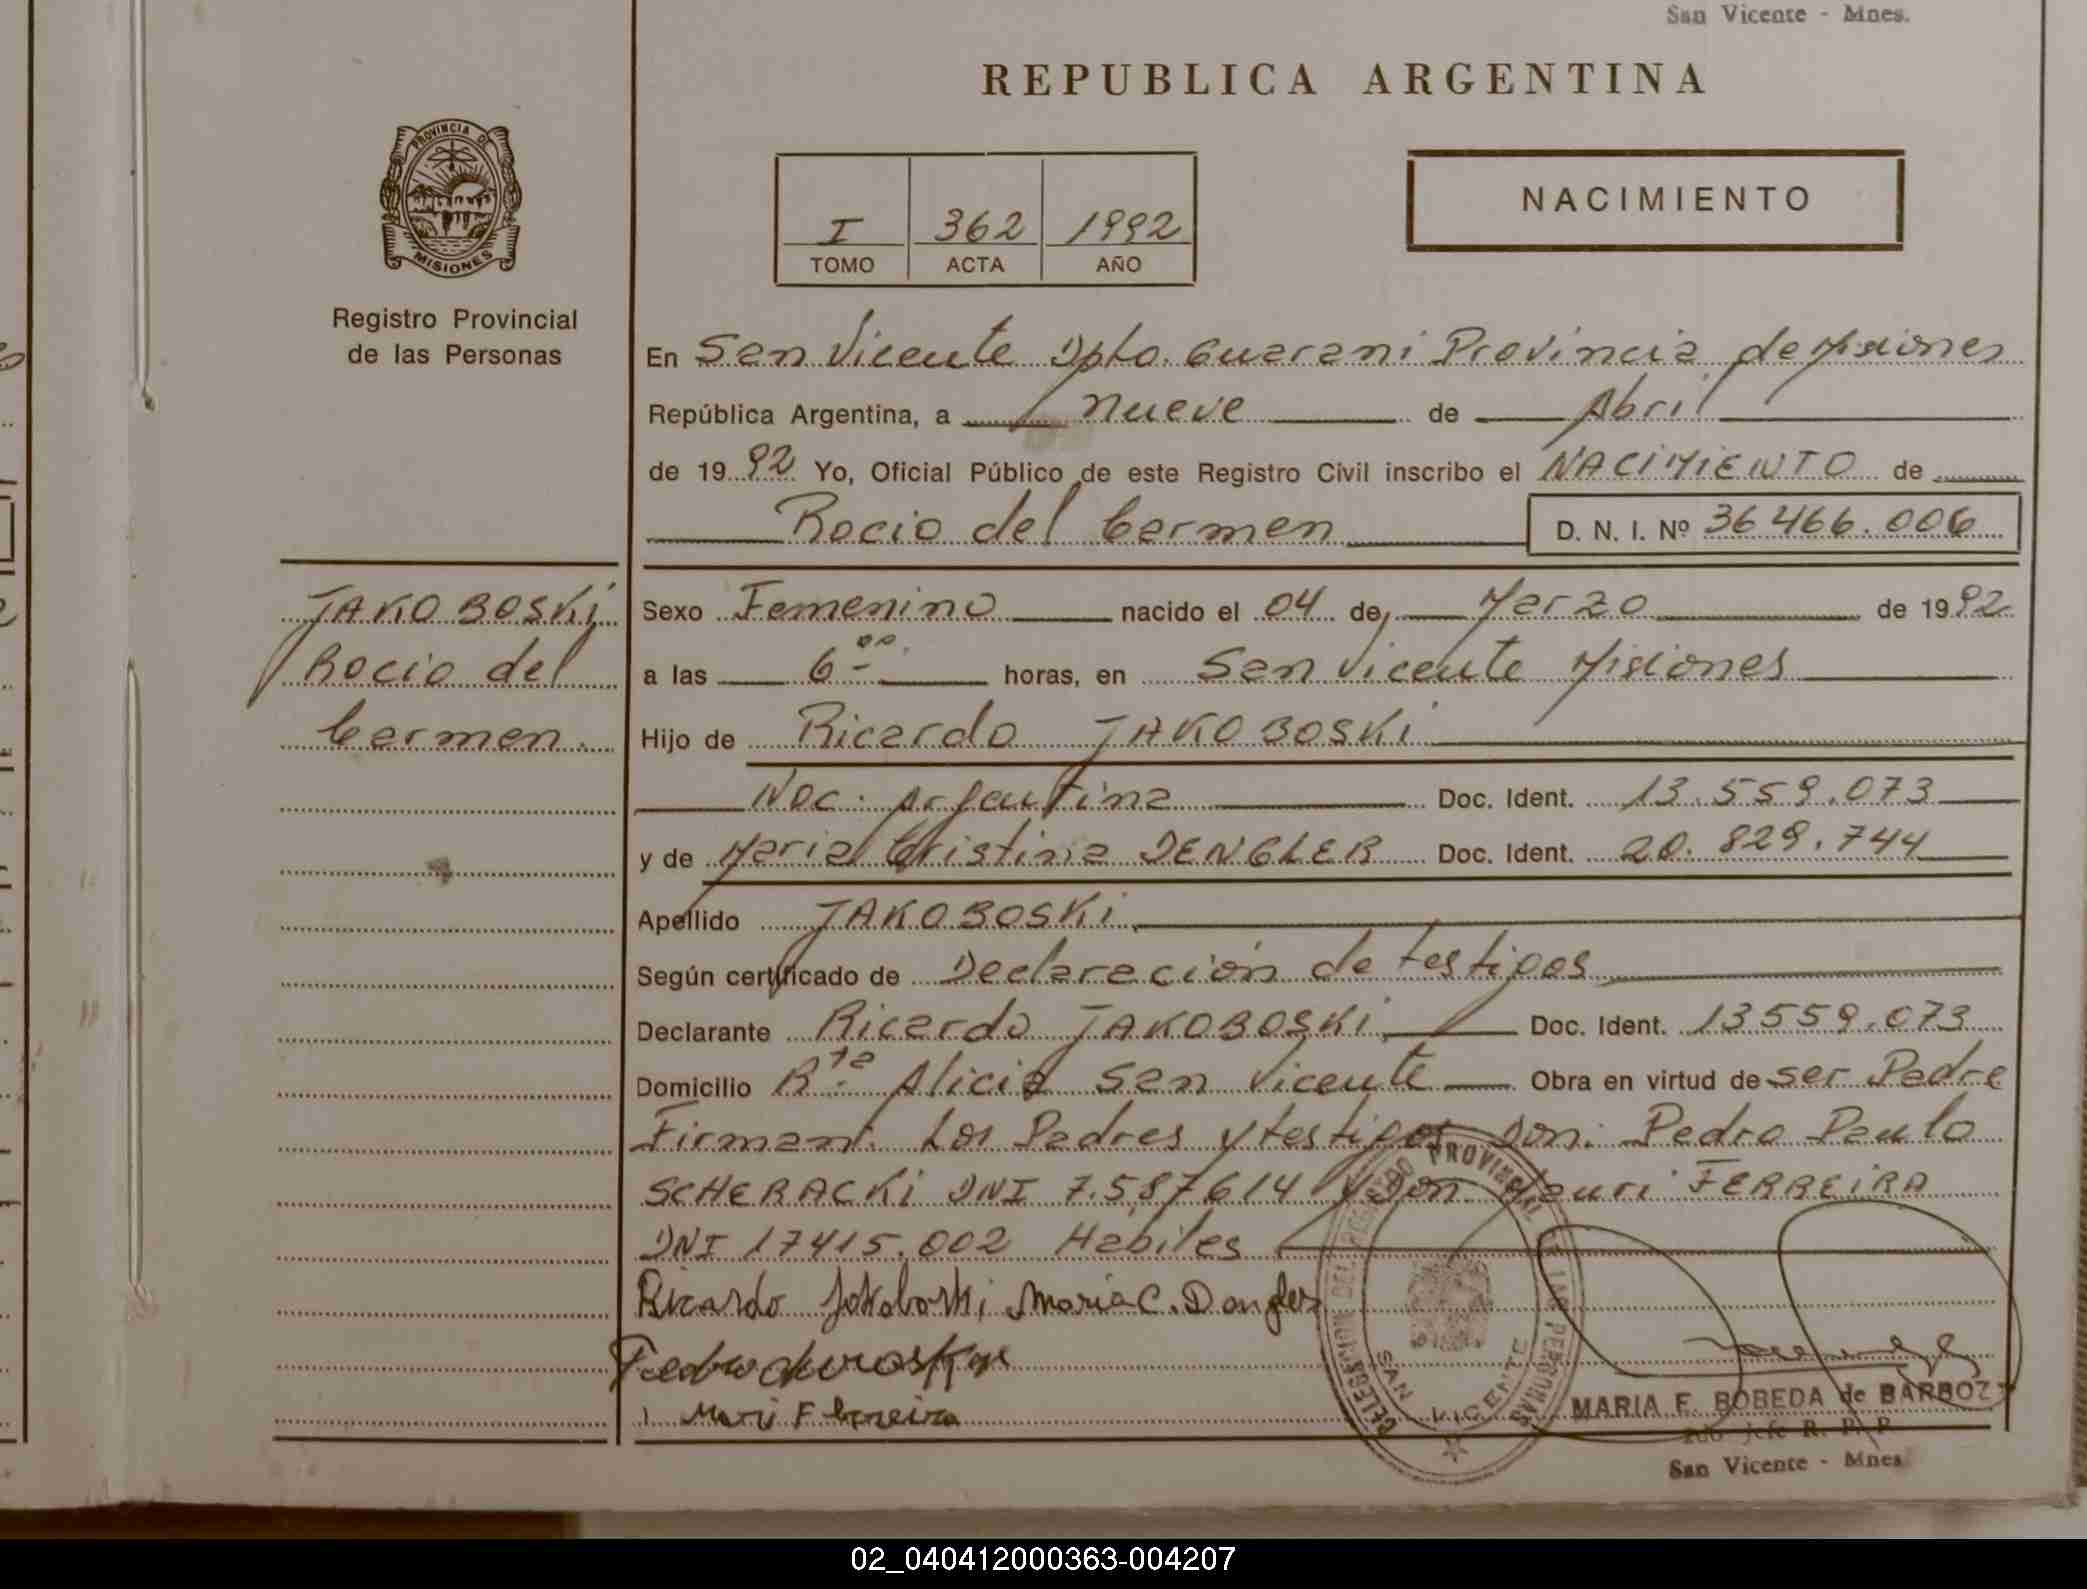 San Vicente - Mnes.
REPUBLICA ARGENTINA
PROVINCIA DE
MISIONES
Registro Provincial
de las Personas
I 362 1992
TOMO ACTA AÑO
NACIMIENTO
En San Vicente Dpto. Guarani Provincia de Misiones
República Argentina, a Nueve de Abril
de 1992 Yo, Oficial Público de este Registro Civil inscribo el NACIMIENTO de
Rocio del Carmen D. N. I. Nº 36466.006
JAKOBOSKi
Rocio del
Carmen.
Sexo Femenino nacido el 04 de Marzo de 1992
a las 6 00 horas, en San Vicente Misiones
Hijo de Ricardo JAKOBOSKi
Nac. Argentina Doc. Ident. 13.559.073
y de Maria Cristina DENGLER Doc. Ident. 20.829.744
Apellido JAKOBOSKi
Según certificado de Declaración de testigos
Declarante Ricardo JAKOBOSKi Doc. Ident. 13559.073
Domicilio Rta Alicia San Vicente Obra en virtud de ser Padre
Firman: Los Padres y testigos Don: Pedro Paulo
SCHERACKi DNI 7.587614 y Don Mauri FERREiRA
DNI 17415.002 Habiles
Ricardo Jakoboski Maria C. Dengler
Ferreira
DELEGACION DEL REGISTRO PROVINCIAL DE LAS PERSONAS
SAN VICENTE
MARIA E. BOBEDA de BARBOZA
Sub Jefe R. P. P.
San Vicente - Mnes.
02_040412000363-004207